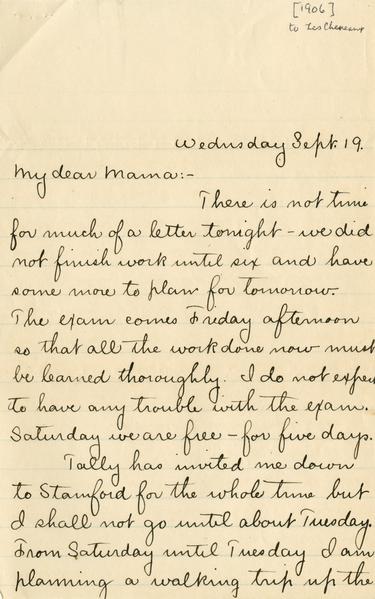 [1906]
to Les Cheneaux
Wednsday Sept. 19.
My dear Mama:-
There is not time
for much of a letter tonight - we did
not finish work until six and have
some more to plan for tomorrow.
The exam comes Friday afternoon
so that all the work done now must
be learned thoroughly. I do not expect
to have any trouble with the exam.
Saturday we are free - for five days.
Tally has invited me down
to Stamford for the whole time but
I shall not go until about Tuesday.
From Saturday until Tuesday I am
planning a walking trip up the